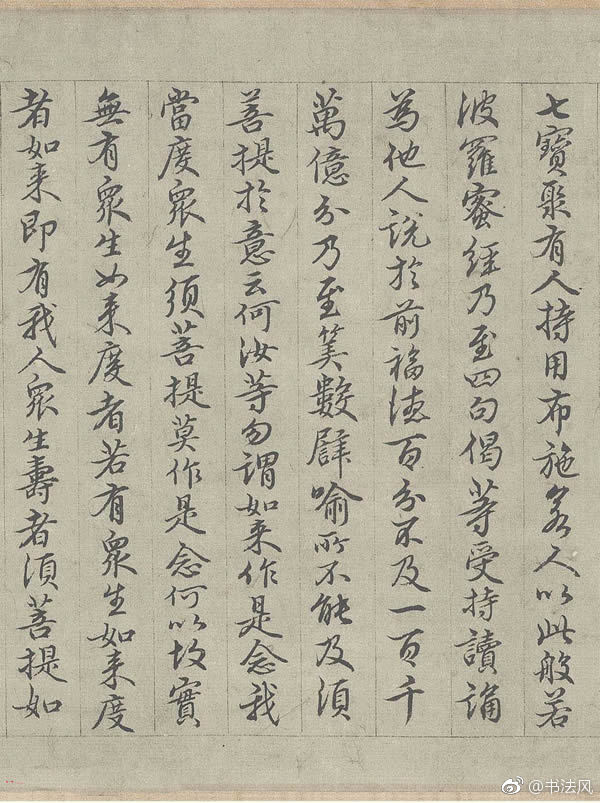 七寶聚有人持用布施若人以此般若
波羅蜜經乃至四句偈等受持讀誦
為他人說於前福德百分不及一百千
萬億分乃至筭數辟喻所不能及須
菩提於意云何汝等勿謂如来作是念我
當度衆生須菩提莫作是念何以故實
無有衆生如来度者若有衆生如来度
者如来即有我人衆生壽者須菩提如
@书法风